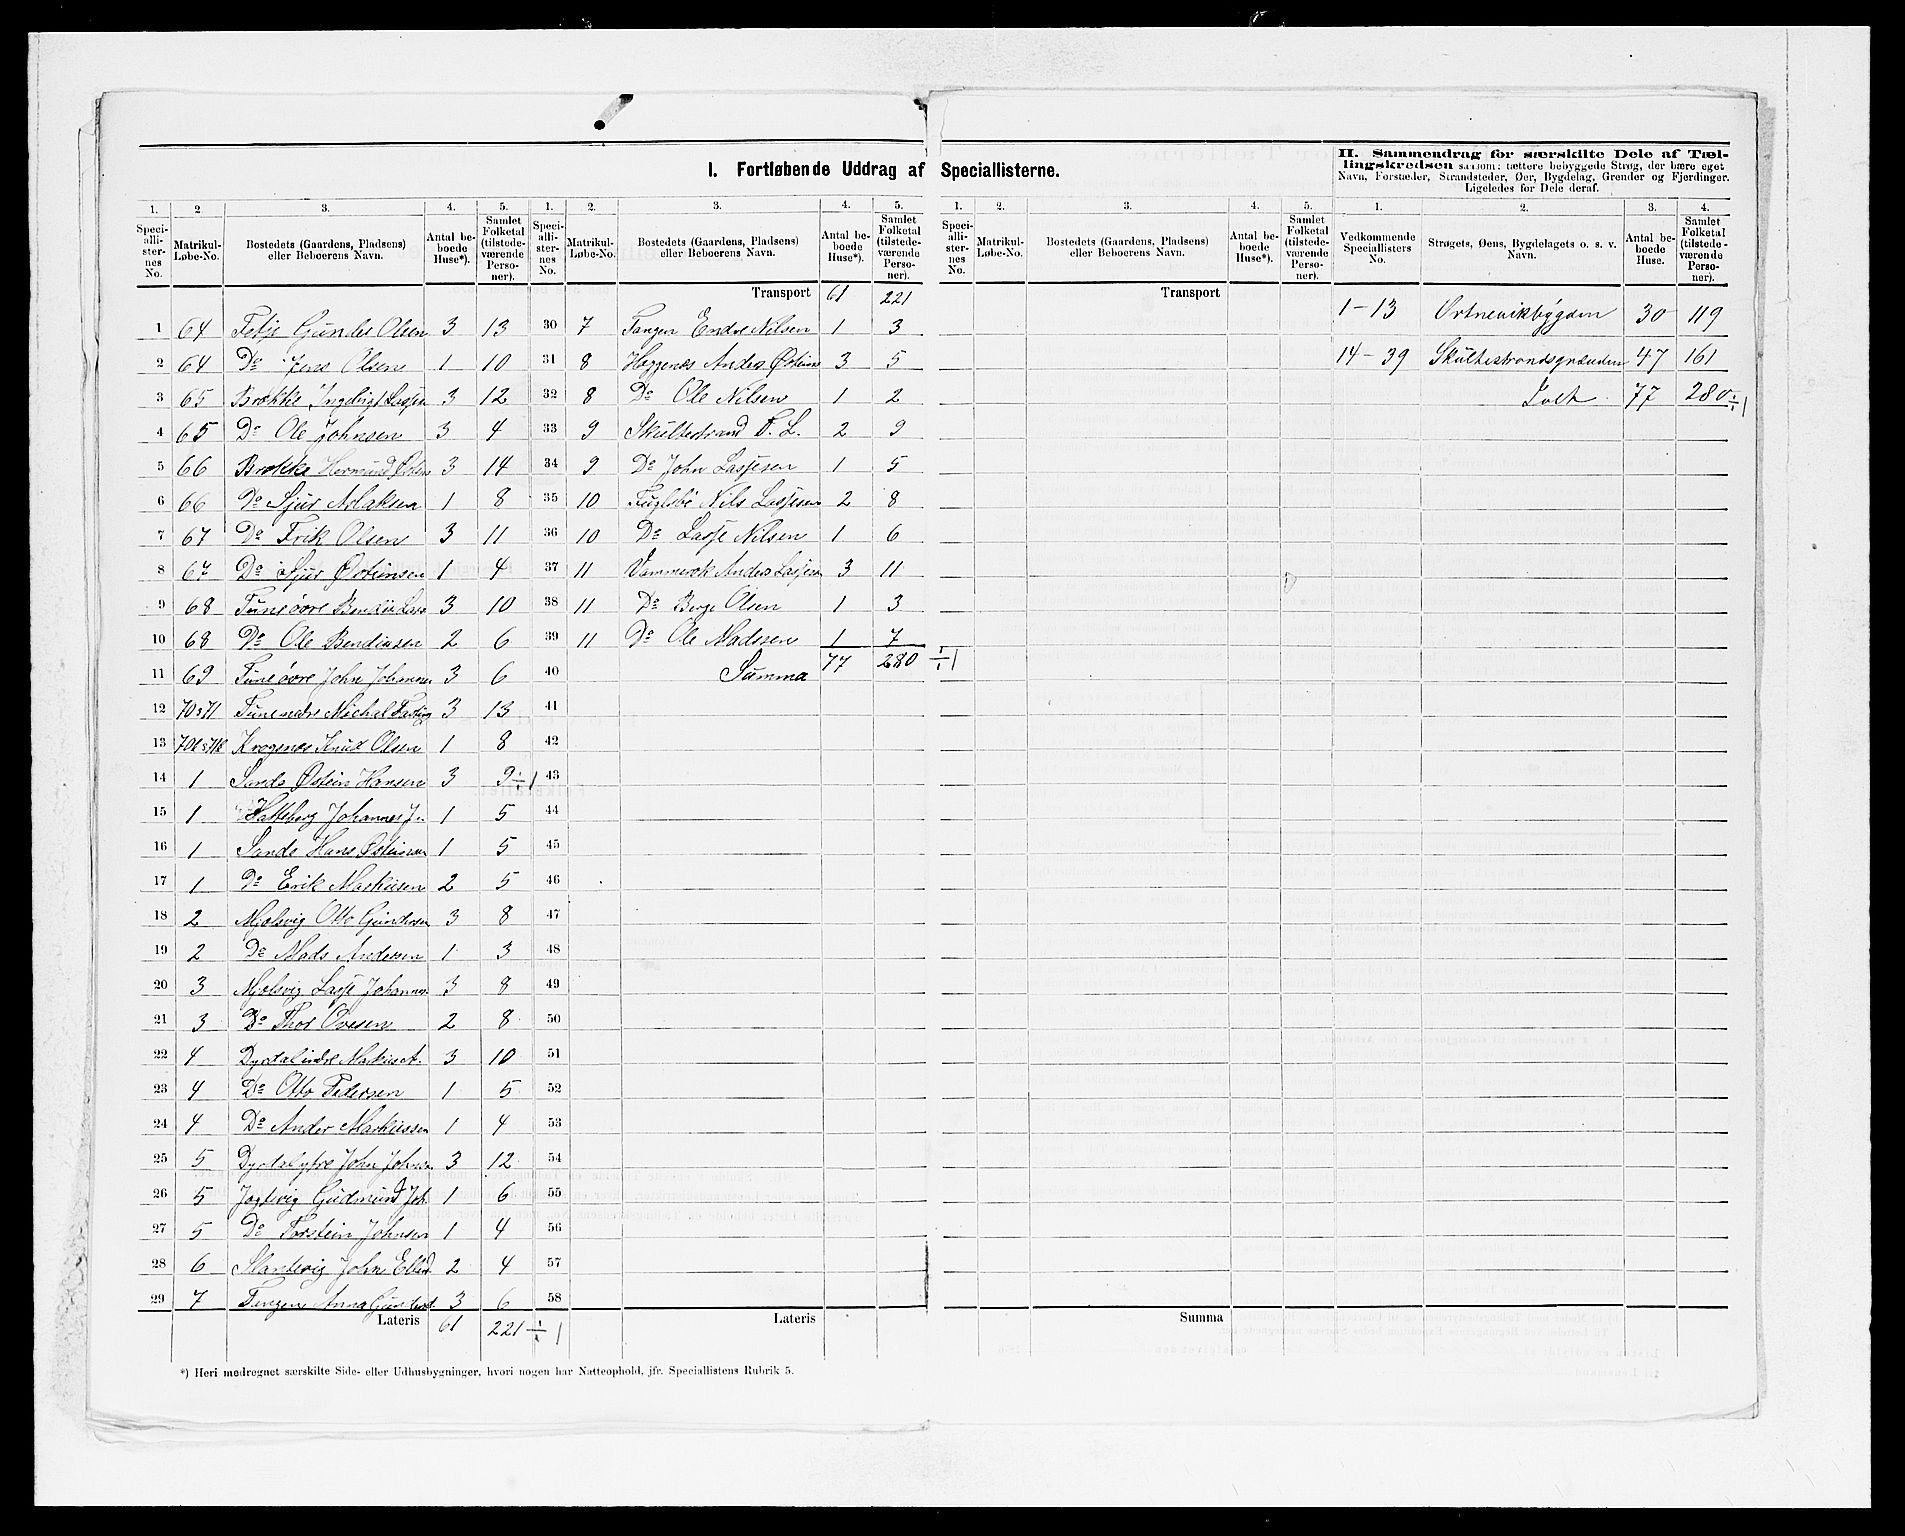 I. Fortløbende Uddrag af Speciallisterne.
II. Sammendrag for særskilte Dele af Tællingskredsen saasom: tættere bebyggede Strøg, der bære eget Navn, Forstæder, Strandsteder, Øer, Bygdelag, Grender og Fjerdinger. Ligeledes for Dele deraf.
1. 2 3. 4. 5. 1. 2. 3. 4. 5. 1. 2. 3. 4. 5. 1. 2. 3. 4.
Speciallisternes No. Matrikul-Løbe-No. Bostedets (Gaardens, Pladsens) eller Beboerens Navn. Antal beboede Huse*). Samlet Folketal (tilstedeværende Personer).
Speciallisternes No. Matrikul-Løbe-No. Bostedets (Gaardens, Pladsens) eller Beboerens Navn. Antal beboede Huse*). Samlet Folketal (tilstedeværende Personer).
Speciallisternes No. Matrikul-Løbe-No. Bostedets (Gaardens, Pladsens) eller Beboerens Navn. Antal beboede Huse*). Samlet Folketal (tilstedeværende Personer).
Vedkommende Speciallisters No. Strøgets, Øens, Bygdelagets o. s. v. Navn. Antal beboede Huse. Samlet Folketal (tilstedeværende Personer).
1 64 Gunder Olsen 3 13
2 64 Do Jens Olsen 1 10
3 65 Brække 3 12
4 65 Do Ole Johnsen 3 4
5 66 Brække Hermund 3 14
6 66 Do Sjur 1 8
7 67 Do Erik Olsen 3 11
8 67 Do Sjur Østensen 1 4
9 68 Tune övre 3 10
10 68 Do Ole Bendiksen 2 6
11 69 Tune övre John Johannes 3 6
12 70 & 71 Tune nedre Michal 3 13
13 Kragenæs Knud Olsen 1 8
14 1 Sande Østein Hansen 3 9 ÷ 1
15 1 Hatteberg Johannes J. 1 5
16 1 Sande Hans Østeinsen 1 5
17 1 Do Erik Markusen 2 5
18 2 Mjølsvig Otto Gundersen 3 8
19 2 Do Mads Andersen 1 3
20 3 Mjølsvig Lasse Johannes 3 8
21 3 Do Thor Ovesen 2 8
22 4 Dyrdal indre Markus A. 3 10
23 4 Do Otto Pedersen 1 5
24 4 Do Anders Markussen 1 4
25 5 Dyrdal ytre John Johnsen 3 12
26 5 Gudmund Joh. 1 6
27 5 Do Torstein Johnsen 1 4
28 6 John 2 4
29 7 Tangen Anna 3 6
Lateris 61 221 ÷ 1
Transport 61 221
30 7 Tangen Endre Nilsen 1 3
31 8 Heggenæs Anders 3 5
32 8 Do Ole Nilsen 1 2
33 9 Skultestrand L. 2 9
34 9 Do John Lassesen 1 5
35 10 Fuglebø Nils Lassesen 2 8
36 10 Do Lasse Nilsen 1 6
37 11 Anders Lassesen 3 11
38 11 Do Berge Olsen 1 3
39 11 Do Ole Madssen 1 7
40 Summa 77 280 ÷ 1
41
42
43
44
45
46
47
48
49
50
51
52
53
54
55
56
57
58
Lateris
Transport
Summa
1 - 13 Ortnevikbygden 30 119
14 - 39 Skultestrandsgrænden 47 161
77 280 ÷ 1
*) Heri medregnet særskilte Side- eller Udhusbygninger, hvori nogen har Natteophold, jfr. Speciallistens Rubrik 5.